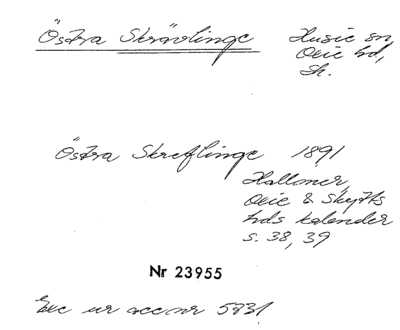 Östra Skrävlinge
Husie sn,
Oxie hd,
Sk.
Östra Skreflinge 1891
Hallonér,
Oxie & Skytts
hds kalender
s. 38, 39
Nr 23955
Exc ur acc nr 5831